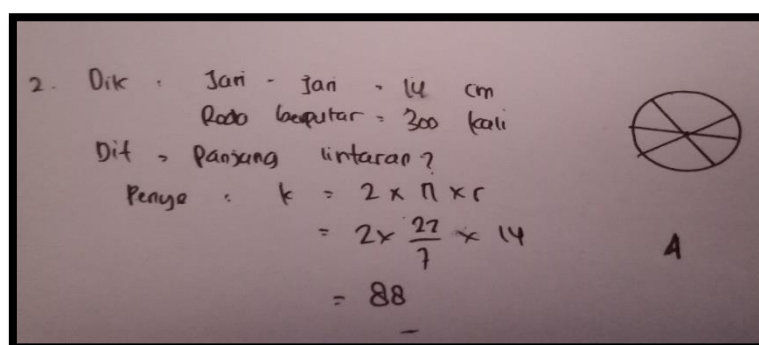 2. Dik : Jari - jari = 14 cm
Roda berputar = 300 kali
Dit = Panjang lintasan?
Penye : k = 2 x π x r
= 2 x 22/7 x 14
= 88
A